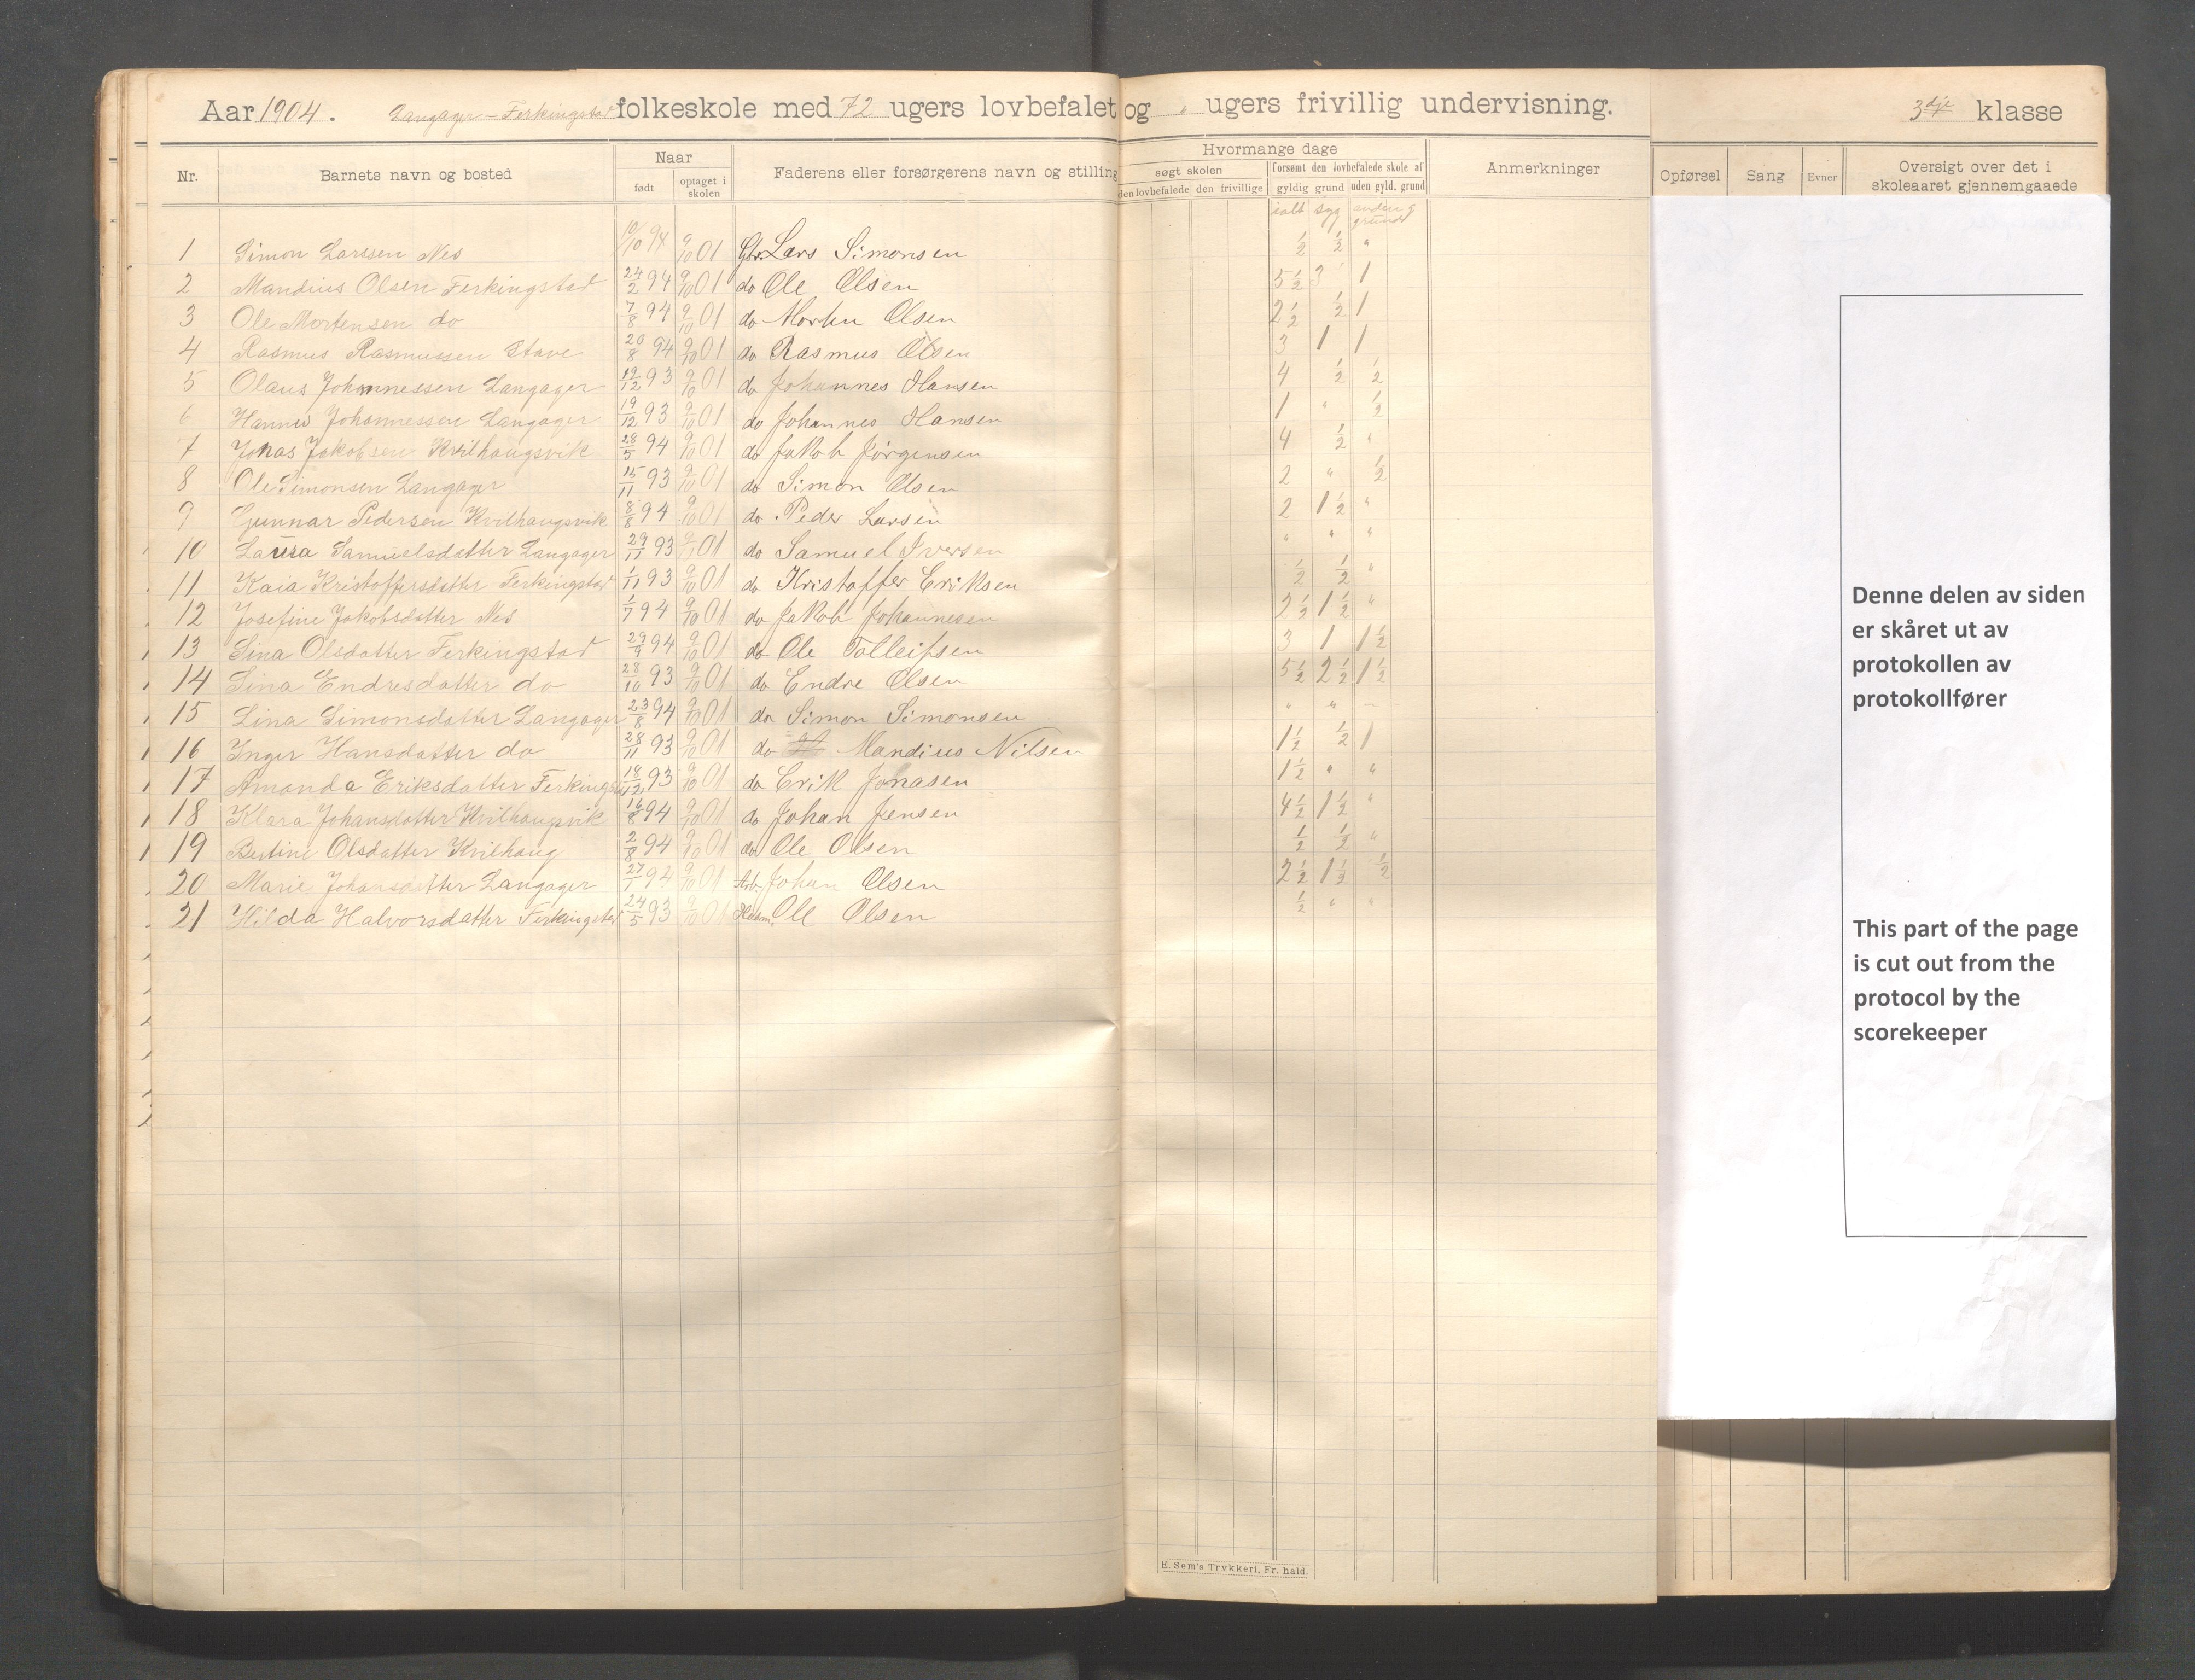 Aar 1904. Langager – Ferkingstad folkeskole med 72 ugers lovbefalet og " ugers frivillig undervisning. 3dje klasse
Nr. Barnets navn og bosted Naar født optaget i skolen Faderens eller forsørgerens navn og stilling Hvormange dage søgt skolen den lovbefalede den frivillige forsømt den lovbefalede skole af gyldig grund uden gyld. grund Anmerkninger Opførsel Sang Evner Oversigt over det i skoleaaret gjennemgaaede
ialt syg anden g grund
1 Simon Larssen Nes 10/10 94 9/10 01 Gbr. Lars Simonsen 1/2 1/2 "
2 Mandius Olsen Ferkingstad 24/2 94 9/10 01 do Ole Olsen 5 1/2 3 1
3 Ole Mortensen do 7/8 94 9/10 01 do Morten Olsen 2 1/2 1/2 1
4 Rasmus Rasmussen Stave 20/8 94 9/10 01 do Rasmus Olsen 3 1 1
5 Olaus Johannessen Langager 19/12 93 9/10 01 do Johannes Hansen 4 1/2 1/2
6 Hannes Johannessen Langager 19/12 93 9/10 01 do Johannes Hansen 1 " 1/2
7 Jonas Jakobsen Kvilhaugsvik 28/5 94 9/10 01 do Jakob Jørgensen 4 1/2 "
8 Ole Simonsen Langager 15/11 93 9/10 01 do Simon Olsen 2 " 1/2
9 Gunnar Pedersen Kvilhaugsvik 8/8 94 9/10 01 do Peder Larsen 2 1 1/2 "
10 Laura Samuelsdatter Langager 29/11 93 9/10 01 do Samuel Iversen " " "
11 Kaia Kristoffersdatter Ferkingstad 1/11 93 9/10 01 do Kristoffer Eriksen 1/2 1/2 "
12 Josefine Jakobsdatter Nes 1/7 94 9/10 01 do Jakob Johannesen 2 1/2 1 1/2 "
13 Sina Olsdatter Ferkingstad 29/9 94 9/10 01 do Ole Tolleifsen 3 1 1 1/2
14 Sina Endresdatter do 28/10 93 9/10 01 do Endre Olsen 5 1/2 2 1/2 1 1/2
15 Lina Simonsdatter Langager 23/8 94 9/10 01 do Simon Simonsen " " "
16 Inger Hansdatter do 28/11 93 9/10 01 do Mandius Nilsen 1 1/2 1/2 1
17 Amanda Eriksdatter Ferkingstad 18/12 93 9/10 01 do Erik Jonasen 1 1/2 " "
18 Klara Johansdatter Kvilhaugsvik 16/8 94 9/10 01 do Johan Jensen 4 1/2 1 1/2 "
19 Bertine Olsdatter Kvilhaug 2/8 94 9/10 01 do Ole Olsen 1/2 1/2 "
20 Marie Johansdatter Langager 27/1 94 9/10 01 Arb. Johan Olsen 2 1/2 1 1/2 1/2
21 Hilda Halvorsdatter Ferkingstad 24/5 93 9/10 01 Husm. Ole Olsen 1/2 " "
E. Sem's Trykkeri, Fr. hald.
Denne delen av siden
er skåret ut av
protokollen av
protokollfører
This part of the page
is cut out from the
protocol by the
scorekeeper